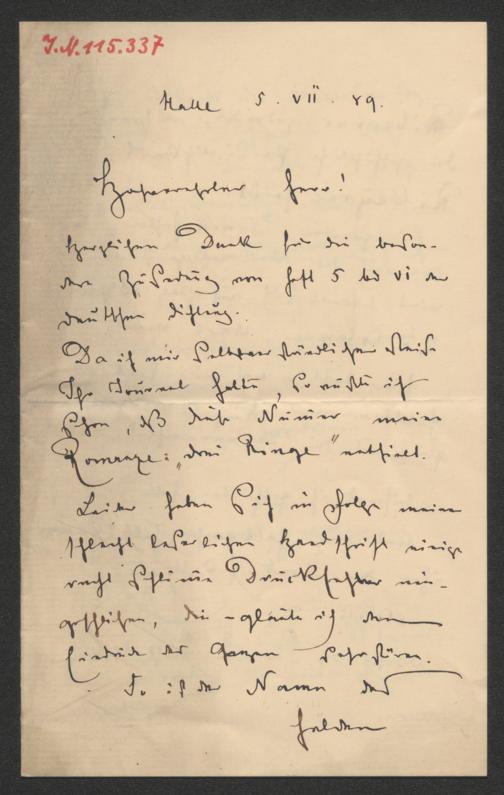 I.N. 115.337
Halle 5. VII. 89.
Hochverehrter Herr!
Herzlichen Dank für die beson-
dere Zusendung von Heft 5 bd VI der
deutschen Dichtung.
Da ich mir selbstverständlicher Weise
Ihr Journal halte, so wußte ich
schon, daß diese Numer meine
Romanze: „drei Ringe" enthielt.
Leider haben sich in Folge meiner
schlecht leserlichen Handschrift einige
recht schlimme Druckfehler ein-
geschlichen, die – glaube ich dem
Eindrucke des Ganzen sehr stören.
So ist der Namen des
Helden